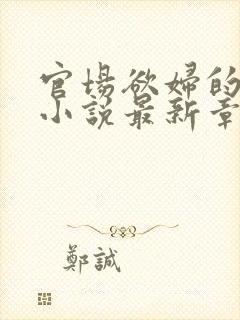 官場欲婦的
小說最新章
鄭誠